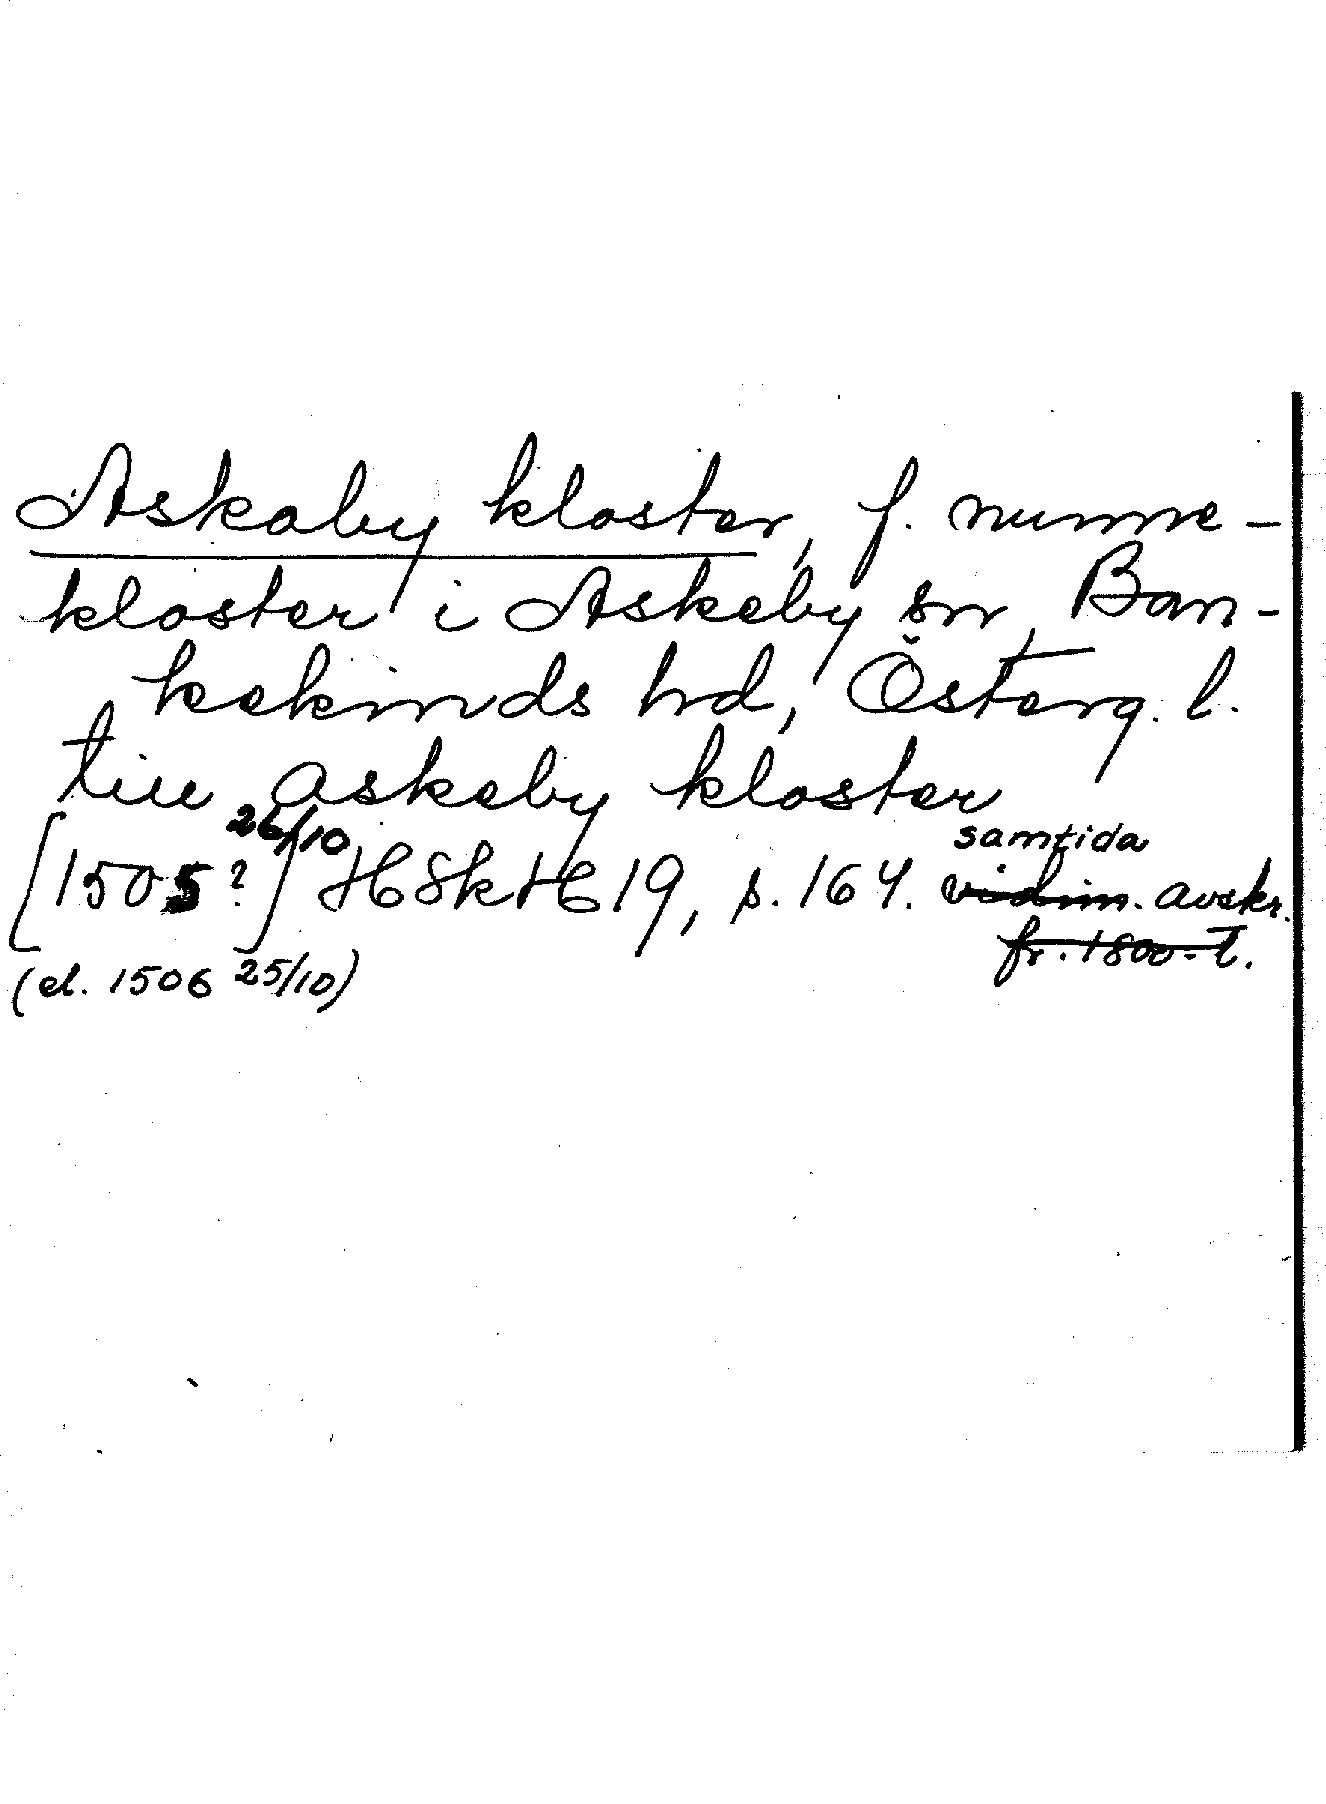 Askeby kloster, f. nunne-
kloster i Askeby sn, Ban-
kekinds hd, Österg. l.
till askeby kloster
[1505? 26/10] HSkH 19, s. 164. samtida vidim. avskr.
fr. 1800-t.
(el. 1506 25/10)